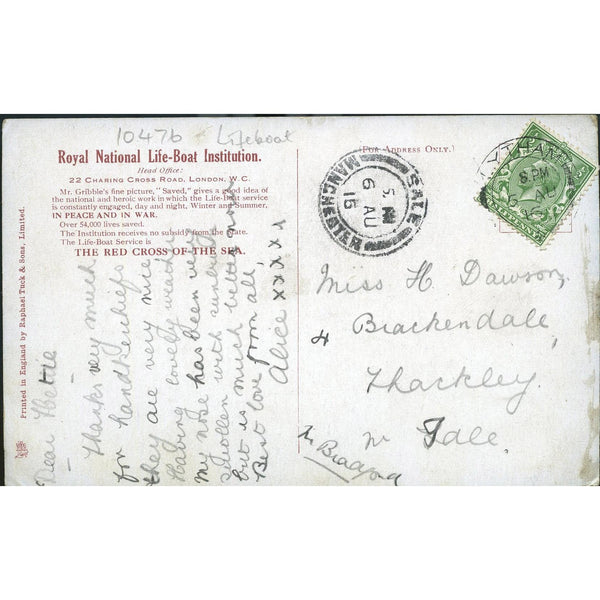 10476 Lifeboat
Royal National Life-Boat Institution.
Head Office:
22 Charing Cross Road, London, W.C.
Mr. Gribble's fine picture, "Saved," gives a good idea of
the national and heroic work in which the Life-Boat service
is constantly engaged, day and night, Winter and Summer,
IN PEACE AND IN WAR.
Over 54,000 lives saved.
The Institution receives no subsidy from the State.
The Life-Boat Service is
THE RED CROSS OF THE SEA.
Printed in England by Raphael Tuck & Sons, Limited.
Dear Hettie
Thanks very much
for handkerchiefs
they are very nice
Having lovely weather
My nose has been very
swollen with sunburn
but is much better now
Best love from all,
Alice xxxxx
(For Address Only.)
SALE
MANCHESTER
6 AU
15
LYTHAM
8. PM
Miss H. Dawson,
4 Brackendale,
Thackley,
nr Sale.
Nr Bradford